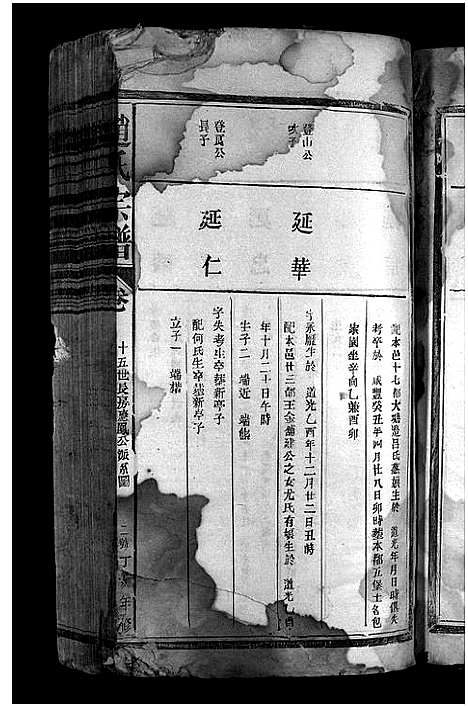 配本邑十七都大塘邊呂氏慕娘生於 道光年月日時俱失
考卒於 咸豐癸丑年四月廿八日卯時葬本都五保土名包
家園坐辛向乙兼酉卯
登山公
次子
延華
字永慶生於 道光乙酉年十二月廿二日丑時
配本邑廿三都王金舖建公之女尤氏有娘生於 道光乙酉
年十月二十日午時
生子二 端近 端態
登鳳公
長子
延仁
字失考生卒葬新亭子
配何氏生卒葬新亭子
立子一 端楷
趙氏宗譜
卷
十五世長房應鳳公派系圖
丁 年修